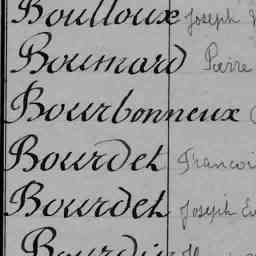 Boulloux Joseph
Boumard Pierre
Bourbonneux
Bourdet Francoi
Bourdet Joseph Eu
Bourdi